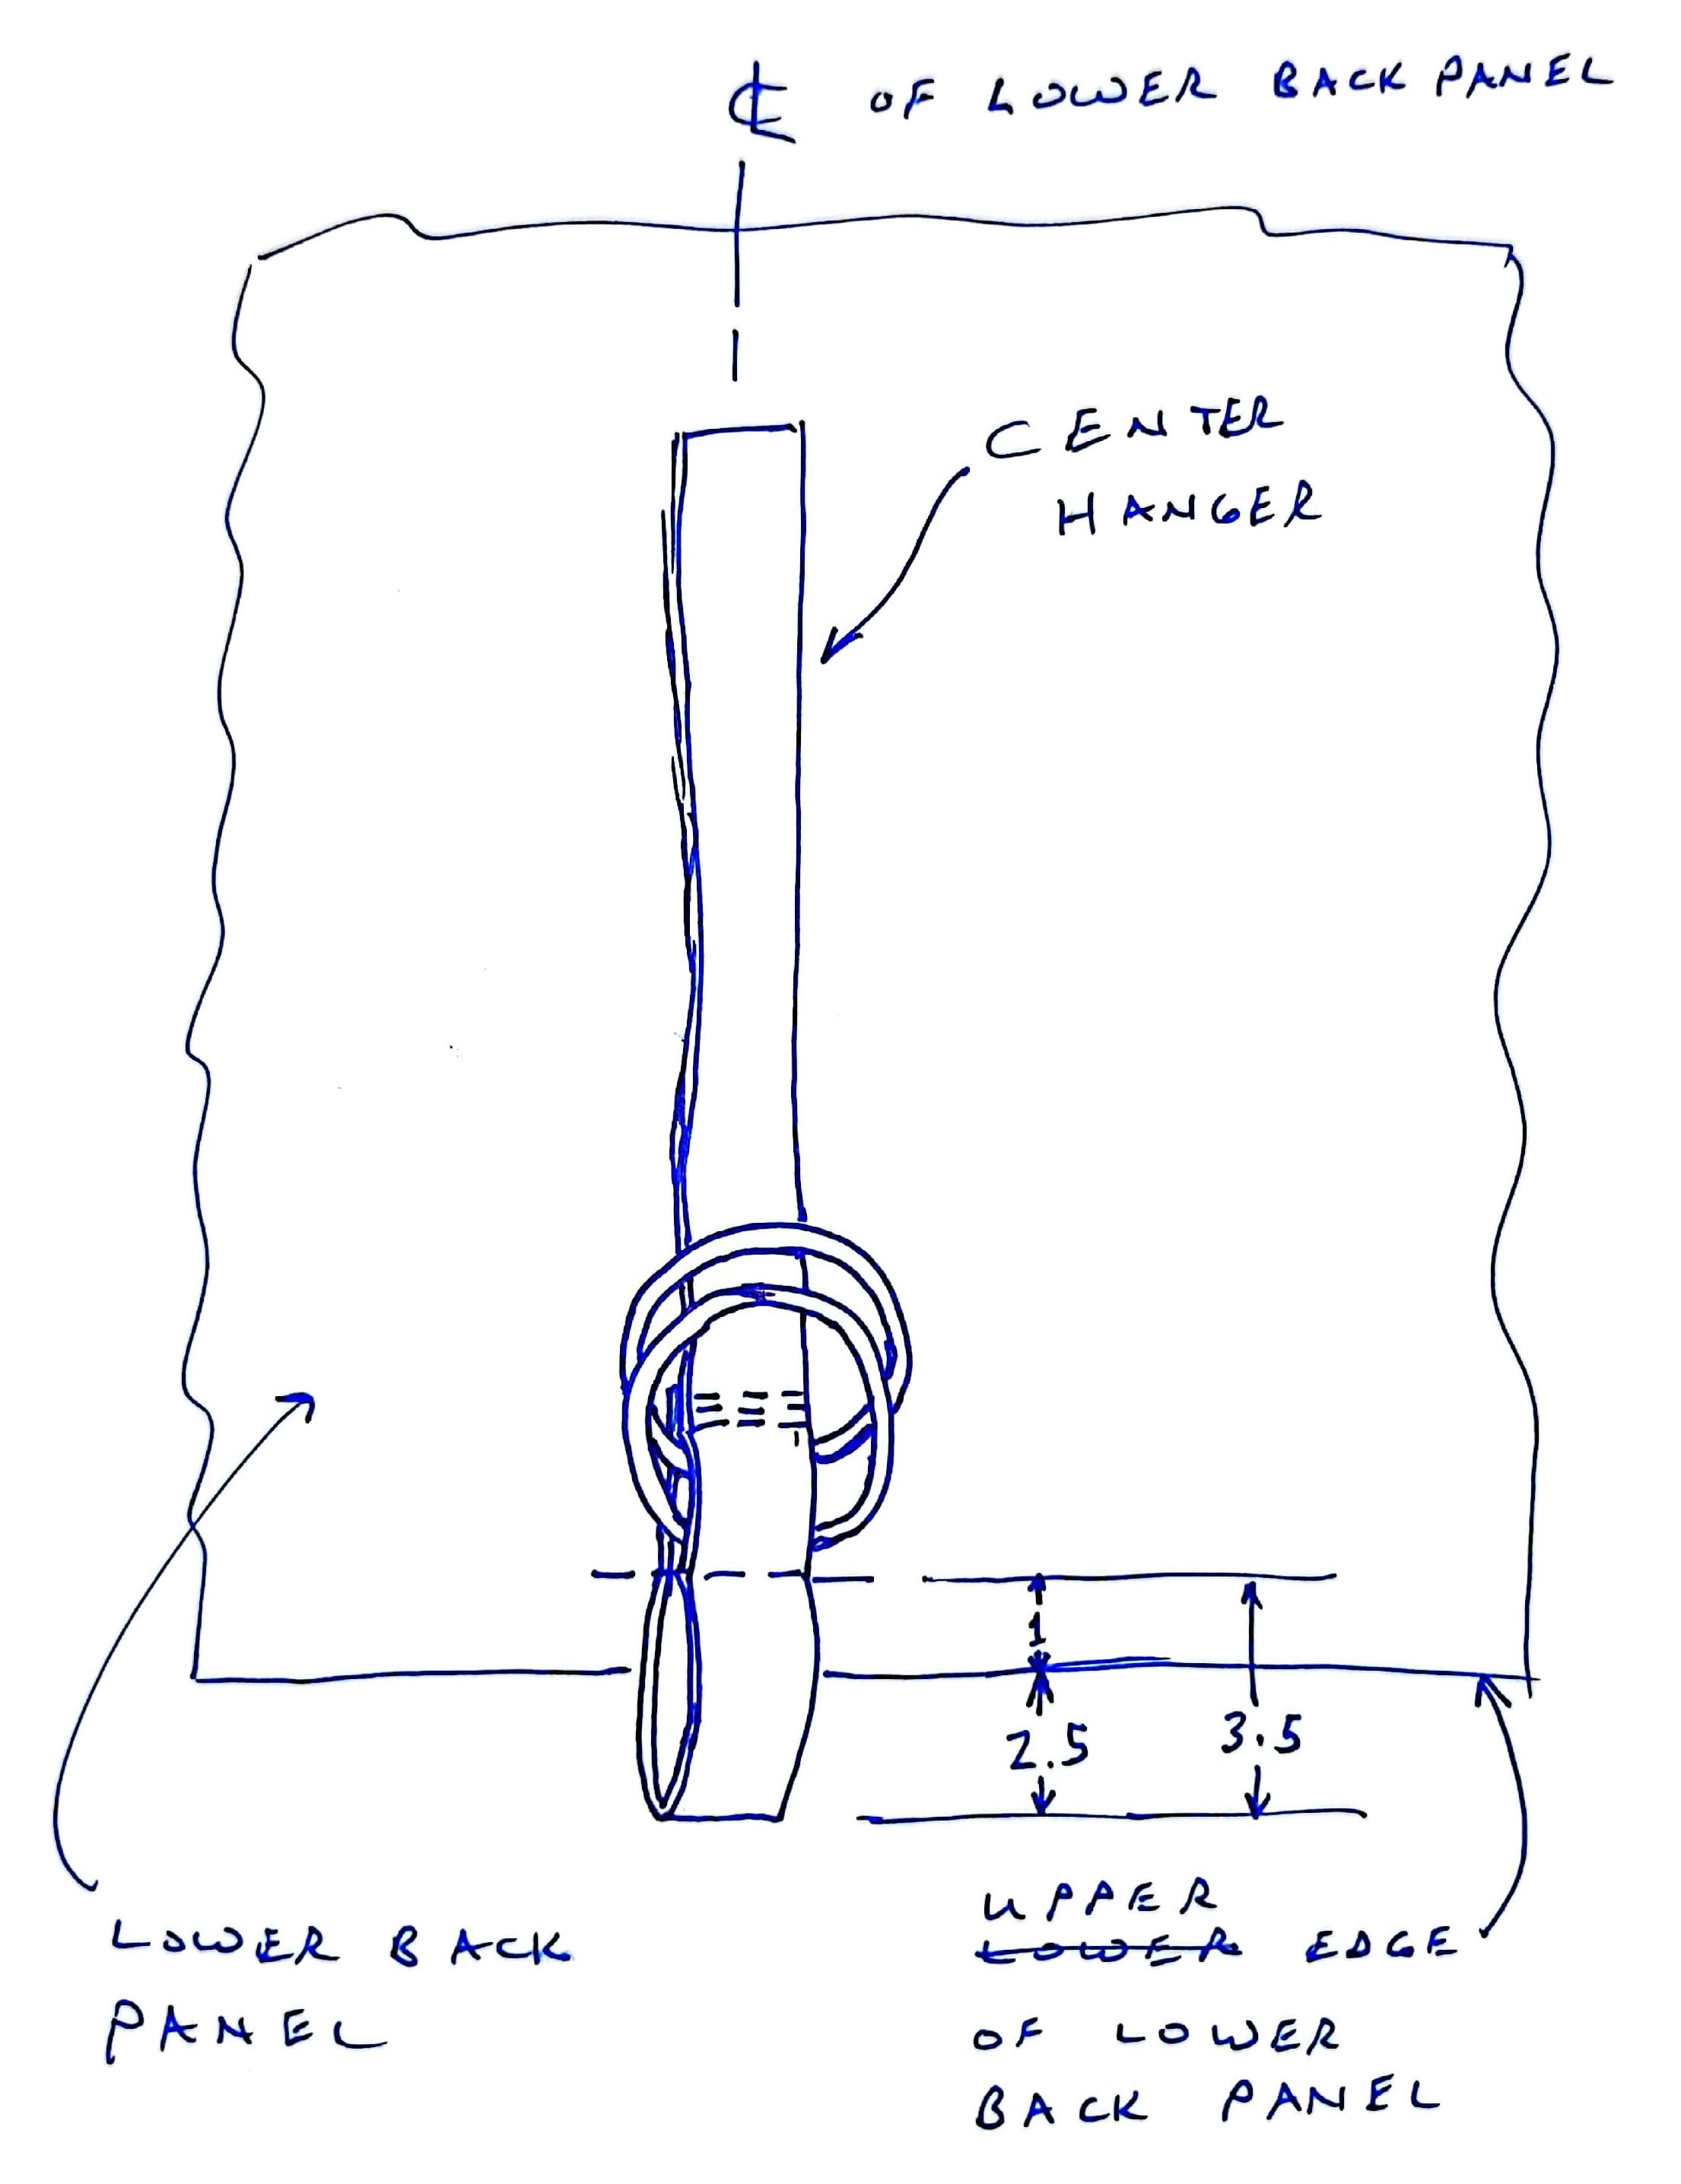 ℄ OF LOWER BACK PANEL
CENTER
HANGER
1
2.5
3.5
LOWER BACK
PANEL
UPPER
LOWER EDGE
OF LOWER
BACK PANEL